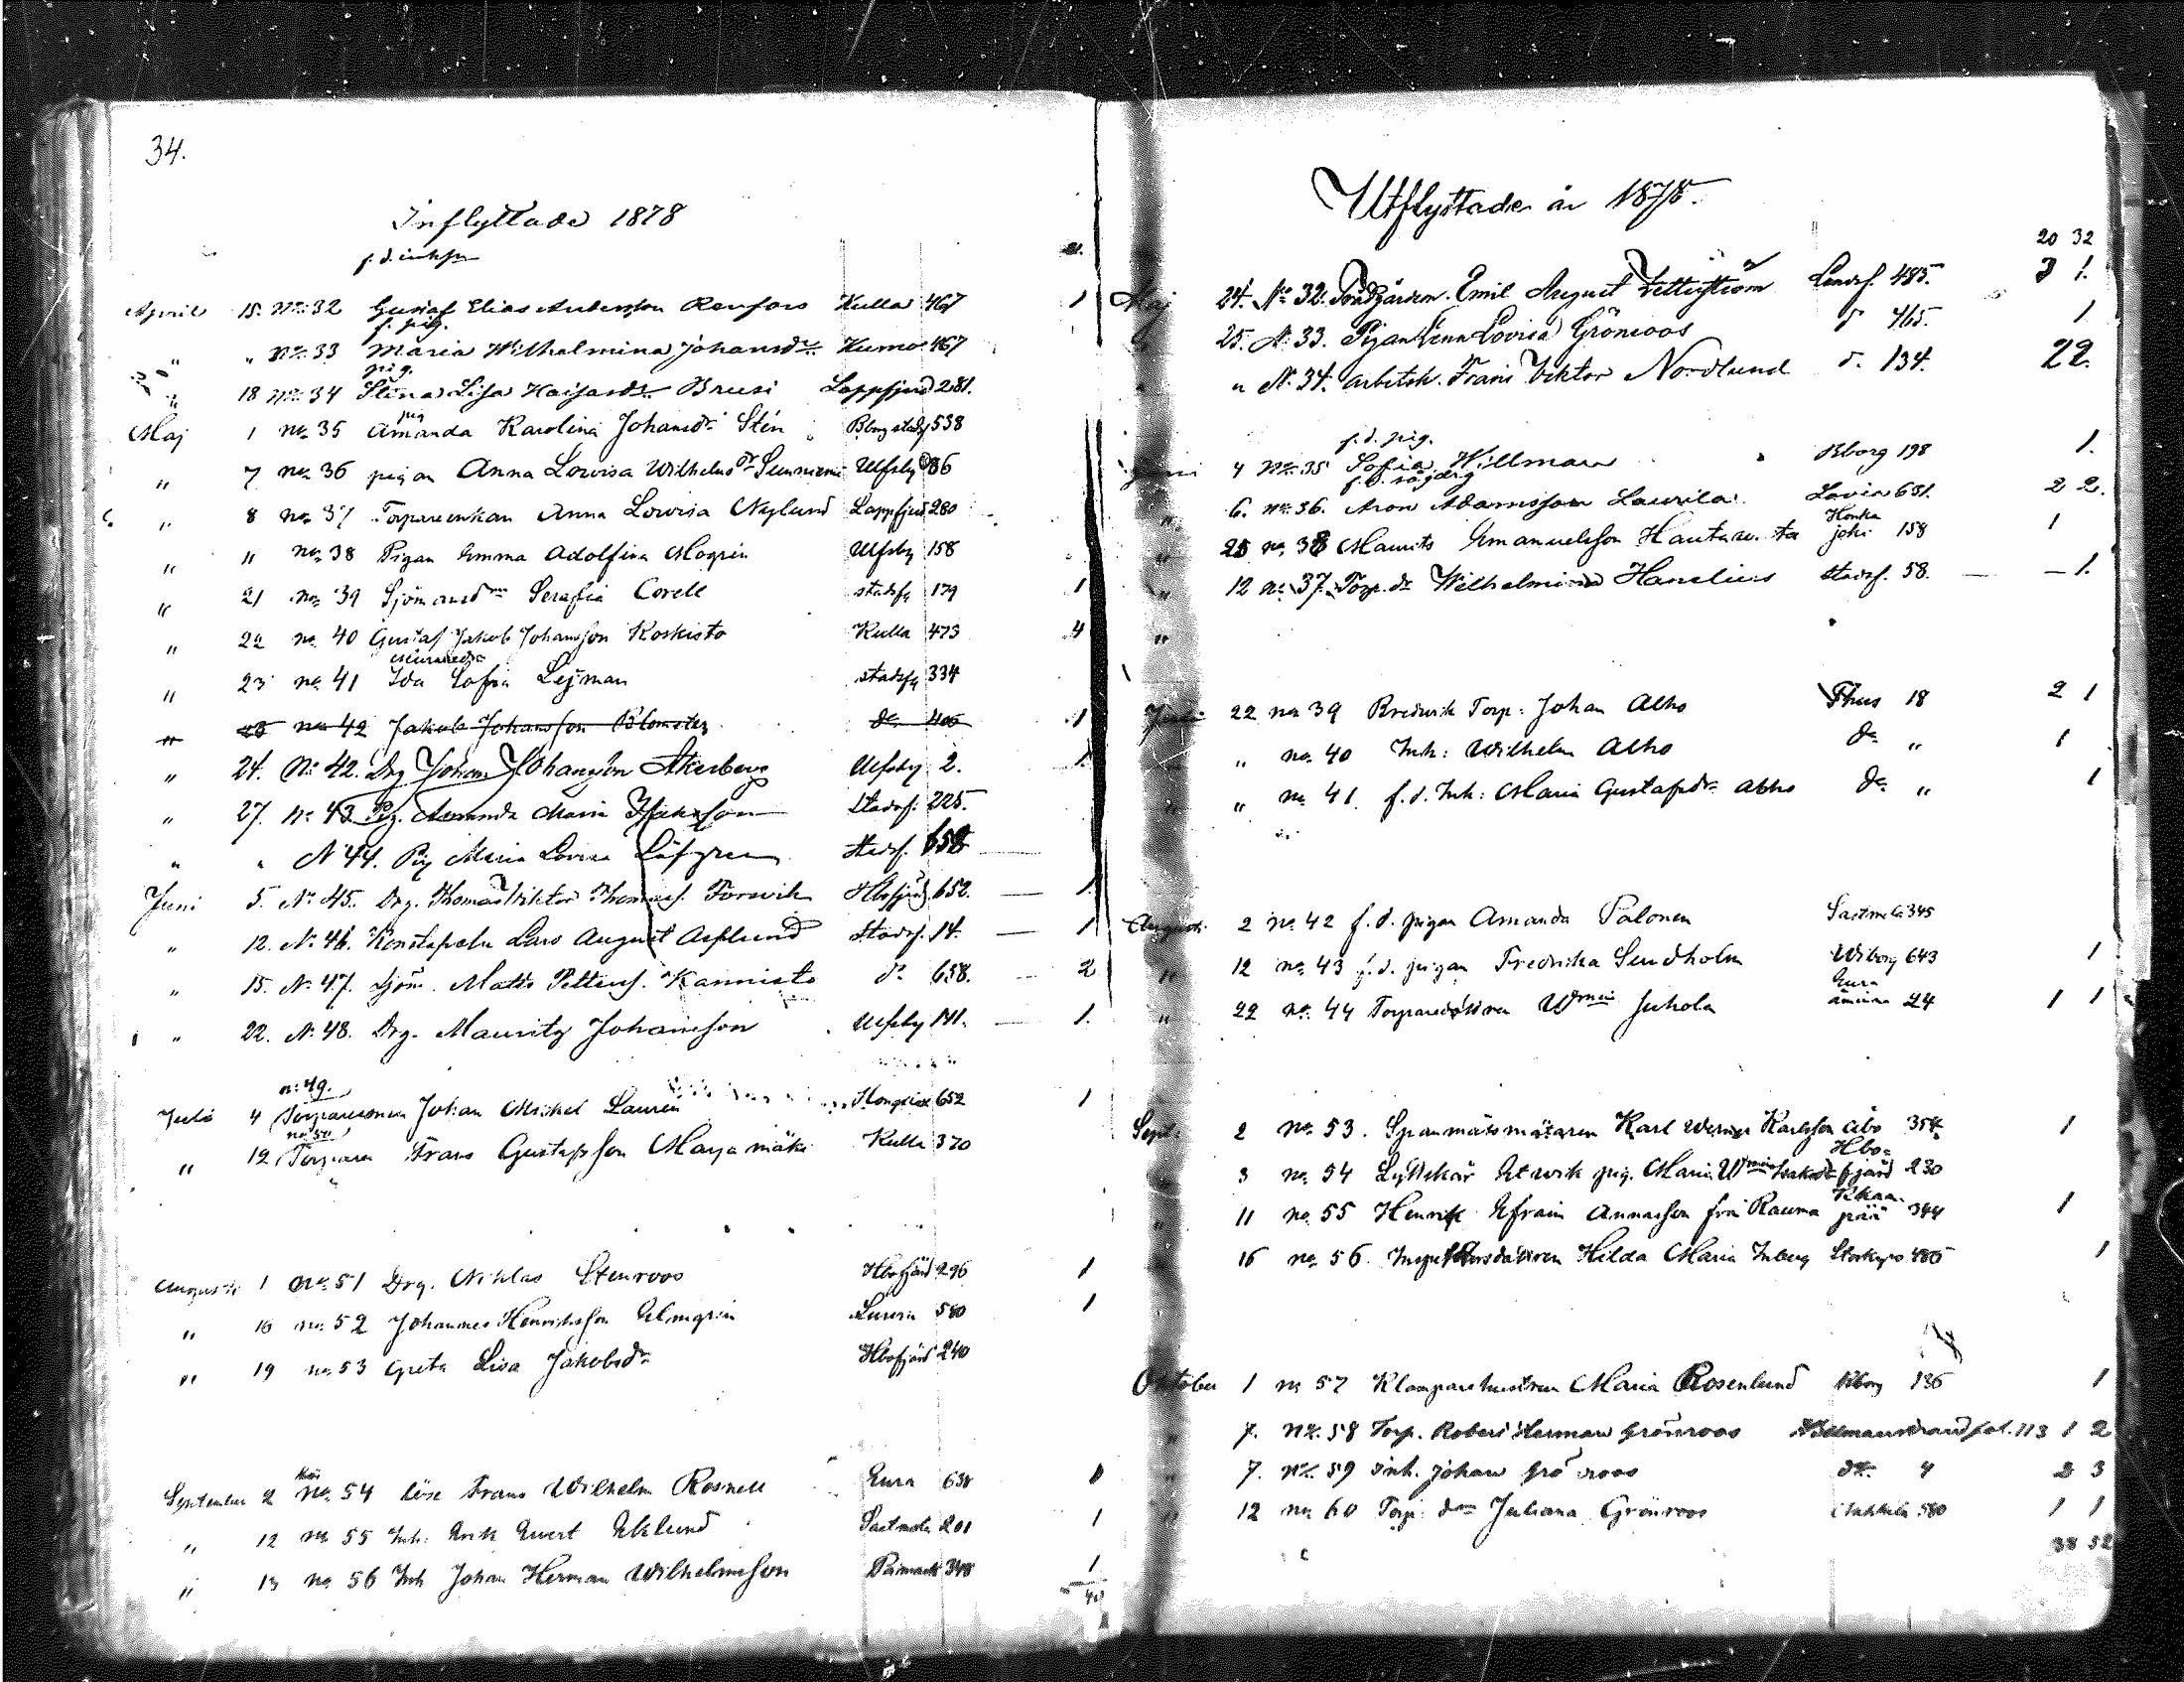 34.
Inflyttade 1878
f. d. inhys
April 15. No 32 Gustaf Elias Andersson Renfors Kulla 467 1
f. pig.
" " No 33 Maria Wilhelmina Johansdr Kumo 467
pig.
" 18 No 34 Stina Lisa Kaisasdr Brusi Lappfjärd 281.
pig
Maj 1 no 35 Amanda Karolina Johansdr Stén 538
" 7 no 36 pigan Anna Lovisa Wilhelmsdr Ulfsby 86
" 8 no 37 Torpareenkan Anna Lovisa Nylund Lappfjerd 280
" 11 no 38 Pigan Emma Adolfina Mogrén Ulfsby 158
" 21 no 39 Sjömansdrn Serafia Corell stadsf 179 1
" 22 no 40 Gustaf Jakob Johansson Koskisto Kulla 473 4
" 23 no 41 Ida Sofia Lejman stadsf 334
" 23 no 42 Jakob Johansson Blomster do 406 1
" 24. No 42. Drg Johan Johansson Åkerberg Ulfsby 2. 1.
" 27. No 43 Pig. Amanda Maria Isaksson Stadsf. 225.
" " N 44. Pig Maria Lovisa Löfgren Stadsf. 658
Juni 5. No 45. Drg. Thomas Viktor Thomass. Forsvik Hbofjärd 652. 1.
" 12. No 46. Konstapeln Lars August Asplund Stadsf. 14. 1
" 15. No 47. Sjöm. Matts Petterss. Kannisto do 658. 2
" 22. No 48. Drg. Mauritz Johansson Ulfsby 141. 1.
n: 49.
Juli 4 Torparesonen Johan Mickel Laurén 652 1
no 50
" 12 Torparen Frans Gustafsson Marjamäki Kulla 370
Augusti 1 no 51 Drg. Niklas Stenroos Hbofjärd 296 1
" 16 no 52 Johannes Henriksson Elmgrén Luvia 580 1
" 19 no 53 Greta Lisa Jakobsdr Hbofjärd 240
September 2 no 54 löse Frans Wilhelm Rosnell Eura 638 1
" 12 no 55 Inh: Erik Evert Eklund Sastmola 201 1
" 13 no 56 Inh Johan Herman Wilhelmsson Påmark 348 1
40
Utflyttade år 1878.
20 32
Maj 24. No 32. Emil August Zetterström Landsf. 485. 3 1.
25. N. 33. Pigan Lovisa Grönroos do 465. 1
" N. 34. Arbetsk. Frans Viktor Nordlund d. 134. 22.
f. d. pig.
Juni 4 No 35 Sofia Willman Åborg 198 1.
6. no 36. Aron Adamsson Laurila Lavia 651. 2 2.
Honka
" 25 no 38 Maurits Emanuelsson Hauta joki 158 1
" 12 no 37. Torp. dr Wilhelmina Hanelius stadsf. 58. 1.
"
Juli 22 no 39 Bredvik Torp: Johan Alho Fhus 18 2 1
" no 40 Inh: Wilhelm Alho do " 1
" no 41 f. d. Inh: Maria Gustafsdr Alho do " 1
Augusti 2 no 42 f. d. pigan Amanda Palonen Sastmola 345
" 12 no 43 f. d. pigan Fredrika Sundholm Wiborg 643 1
Eura
" 22 no 44 Torparedottren Wmina Juhola åminne 24 1 1
Sept. 2 no 53. Spanmålsmätaren Karl Werner Karlsson Åbo 354 1
Hbo-
3 no 54 Lyttskär Utvik pig. Maria Wmina Isaksdr fjärd 230
Kikaa-
" 11 no 55 Henrik Efraim Annasson frå Rauma pää 344 1
16 no 56. Inspektorsdottren Hilda Maria Inberg Storkyro 486 1
Oktober 1 no 57 Klampare hustrun Maria Rosenlund Wiborg 136 1
" 7. No 58 Torp. Robert Herman Grönroos Willmanstrand fol. 113 1 2
7. No 59 Inh. Johan Grönroos do 4 2 3
12 no 60 Torp: drn Juliana Grönroos 580 1 1
38 52